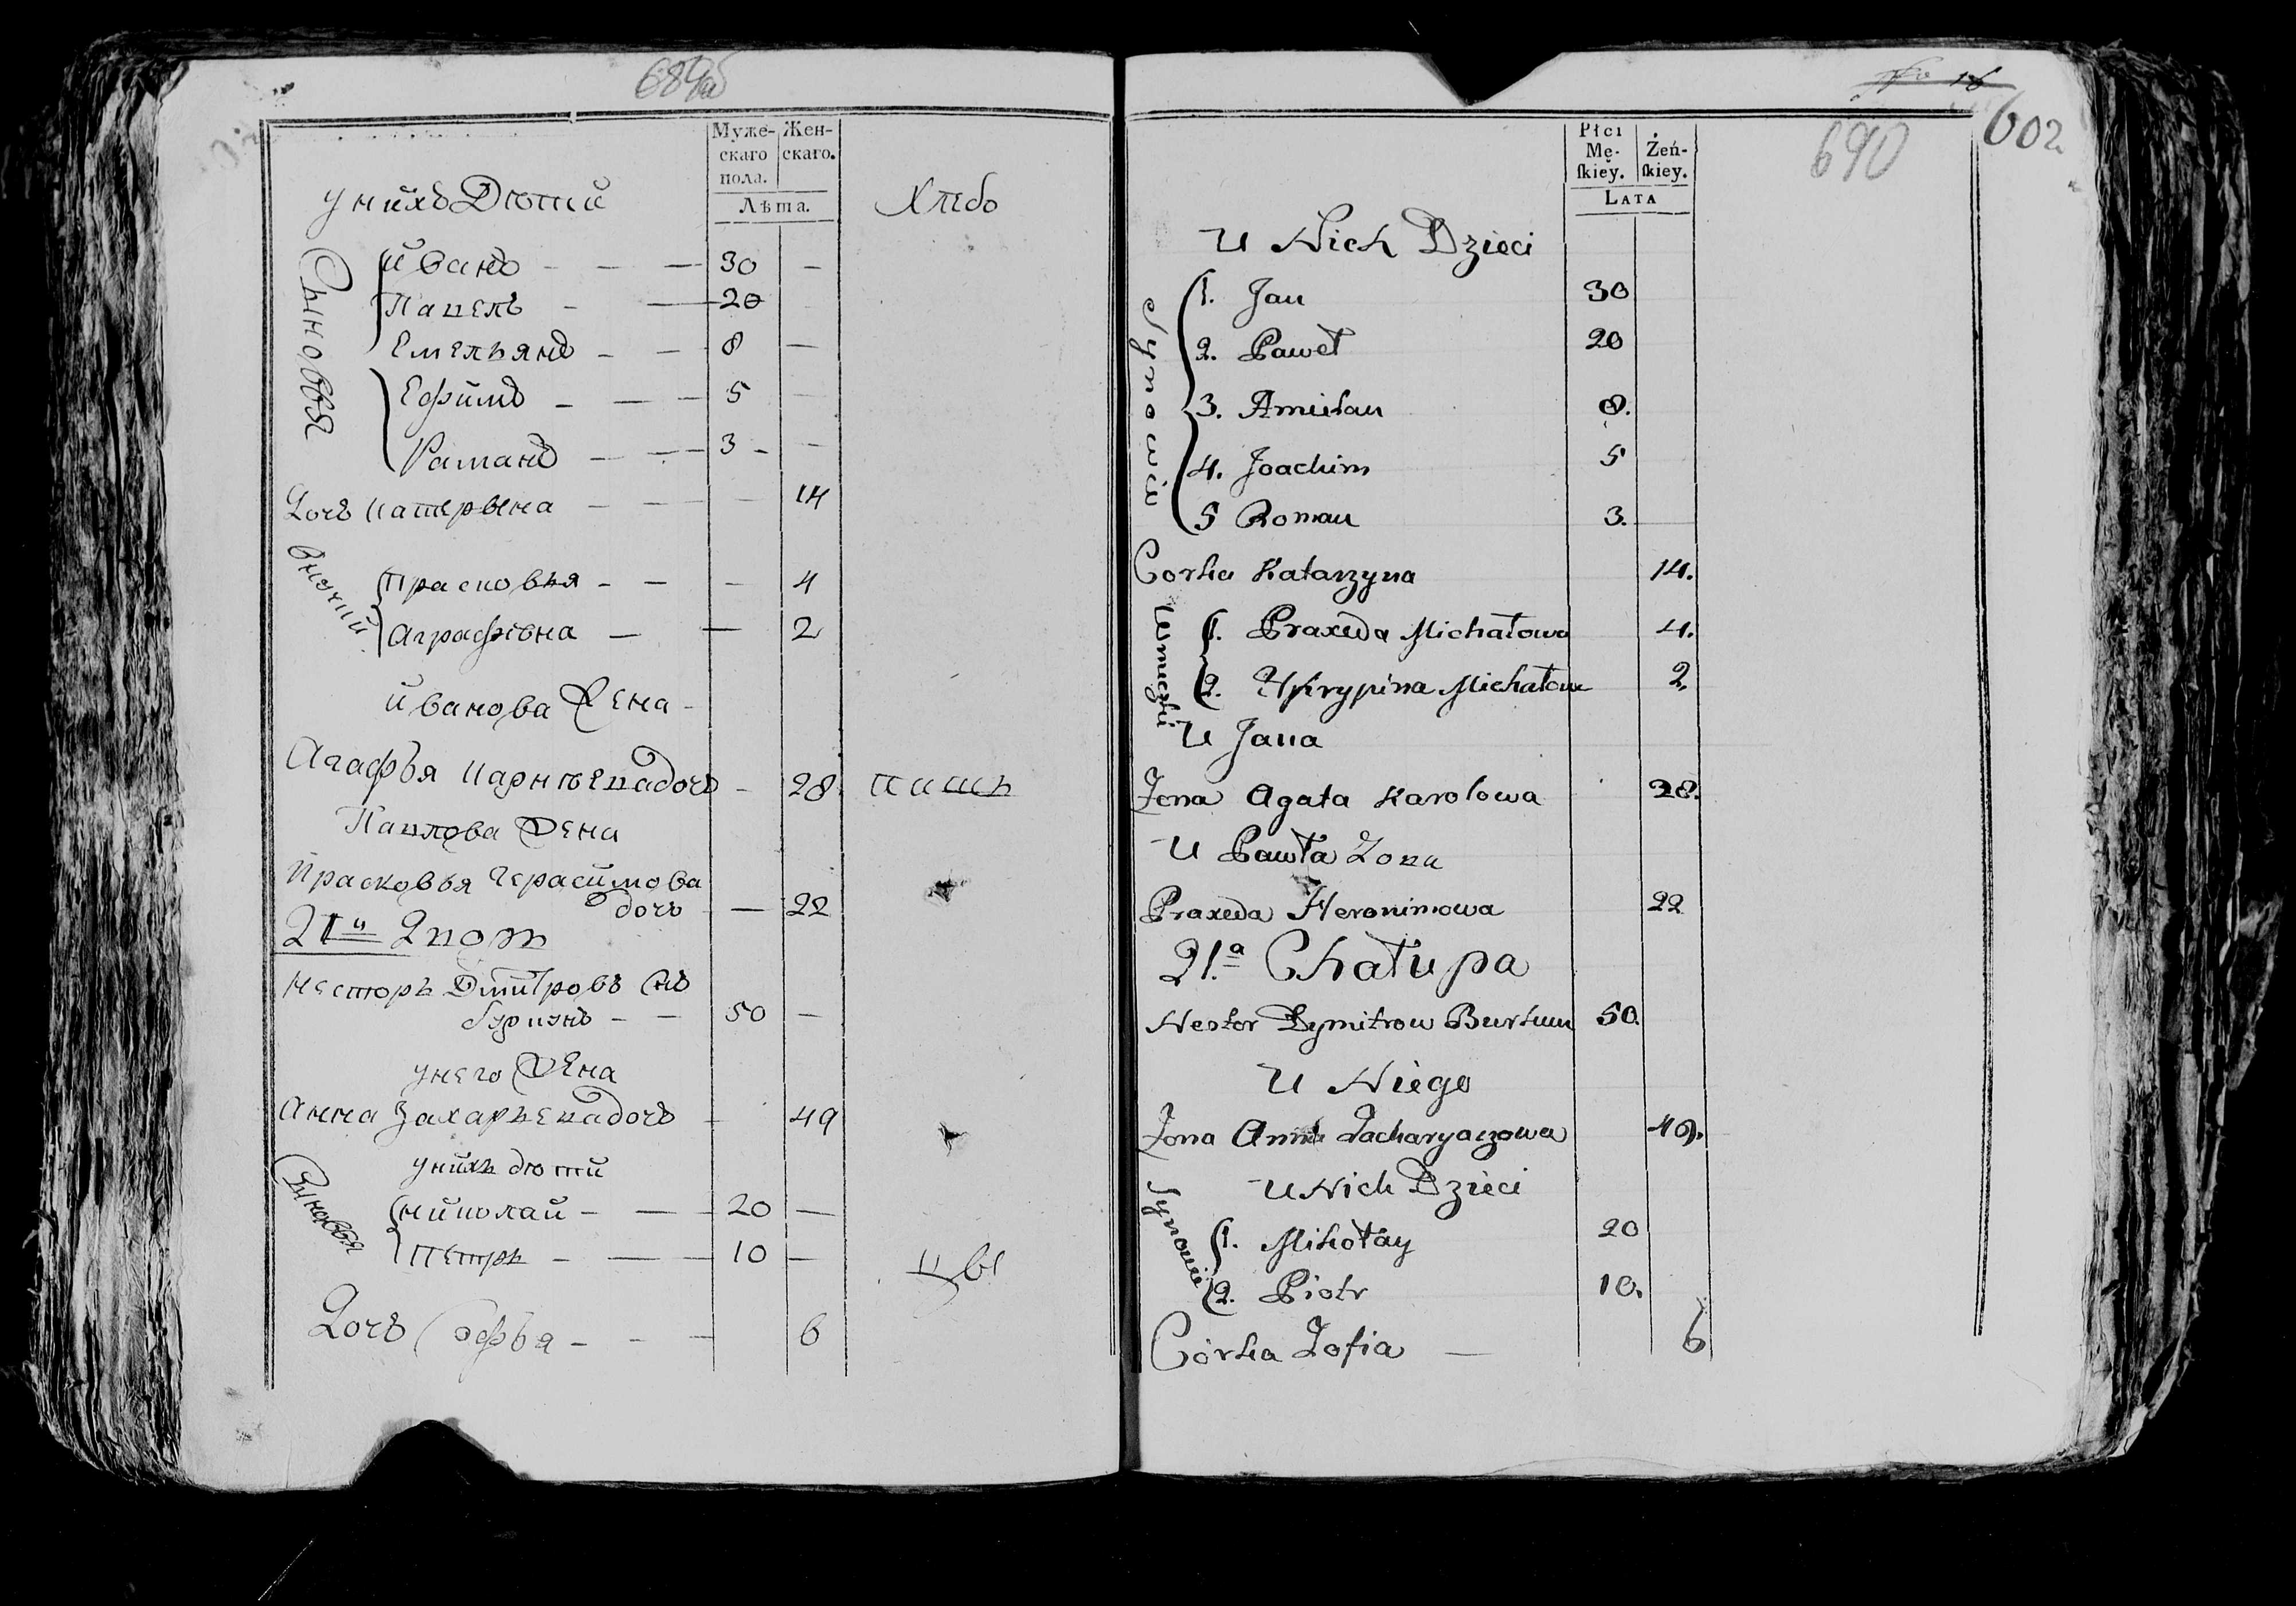 689об
Муже-
скаго
пола.
Жен-
скаго.
Лѣта.
унихъ Дѣтей
Хлѣбо
Сыновья
Иванъ - - - 30 -
Павелъ - - 20
Емельянъ - - 8 -
Ефимъ - - - 5 -
Раманъ - - - 3 - -
Дочь Катерына - - - 14
внучки
Прасковья - - - 4
Аграфѣна - - 2
Иванова Жена -
Агафья Карнѣева дочь - 28 паш
Павлова Жена
Прасковья Герасимова
дочь - 22
21й Двор
Несторъ Дмитровъ Снъ
- - 50 -
унего Жена
Анна Захарьева дочь - 49
унихъ дѣти
Сыновья
Николай - - - 20 -
Петръ - - - 10 -
цы
Дочь Софья - - - 6
602
690
Płci
Mę-
skiey.
Żeń-
skiey.
LATA
U Nich Dzieci
Synowie
1. Jan 30
2. Paweł 20
3. Amielian 8.
4. Joachim 5
5 Roman 3.
Corka Katarzyna 14.
Wnuczki
1. Praxeda Michałowa 4.
2. Hkrypina Michałow 2.
U Jana
Zona Agata Karolowa 28.
U Pawła Zona
Praxeda Heronimowa 22
21.a Chałupa
Nestor Dymitrow 50.
U Niego
Zona Anna Zacharyaszowa 49.
U Nich Dzieci
Synowie
1. Mikołay 20
2. Piotr 10.
Córka Zofia - 6